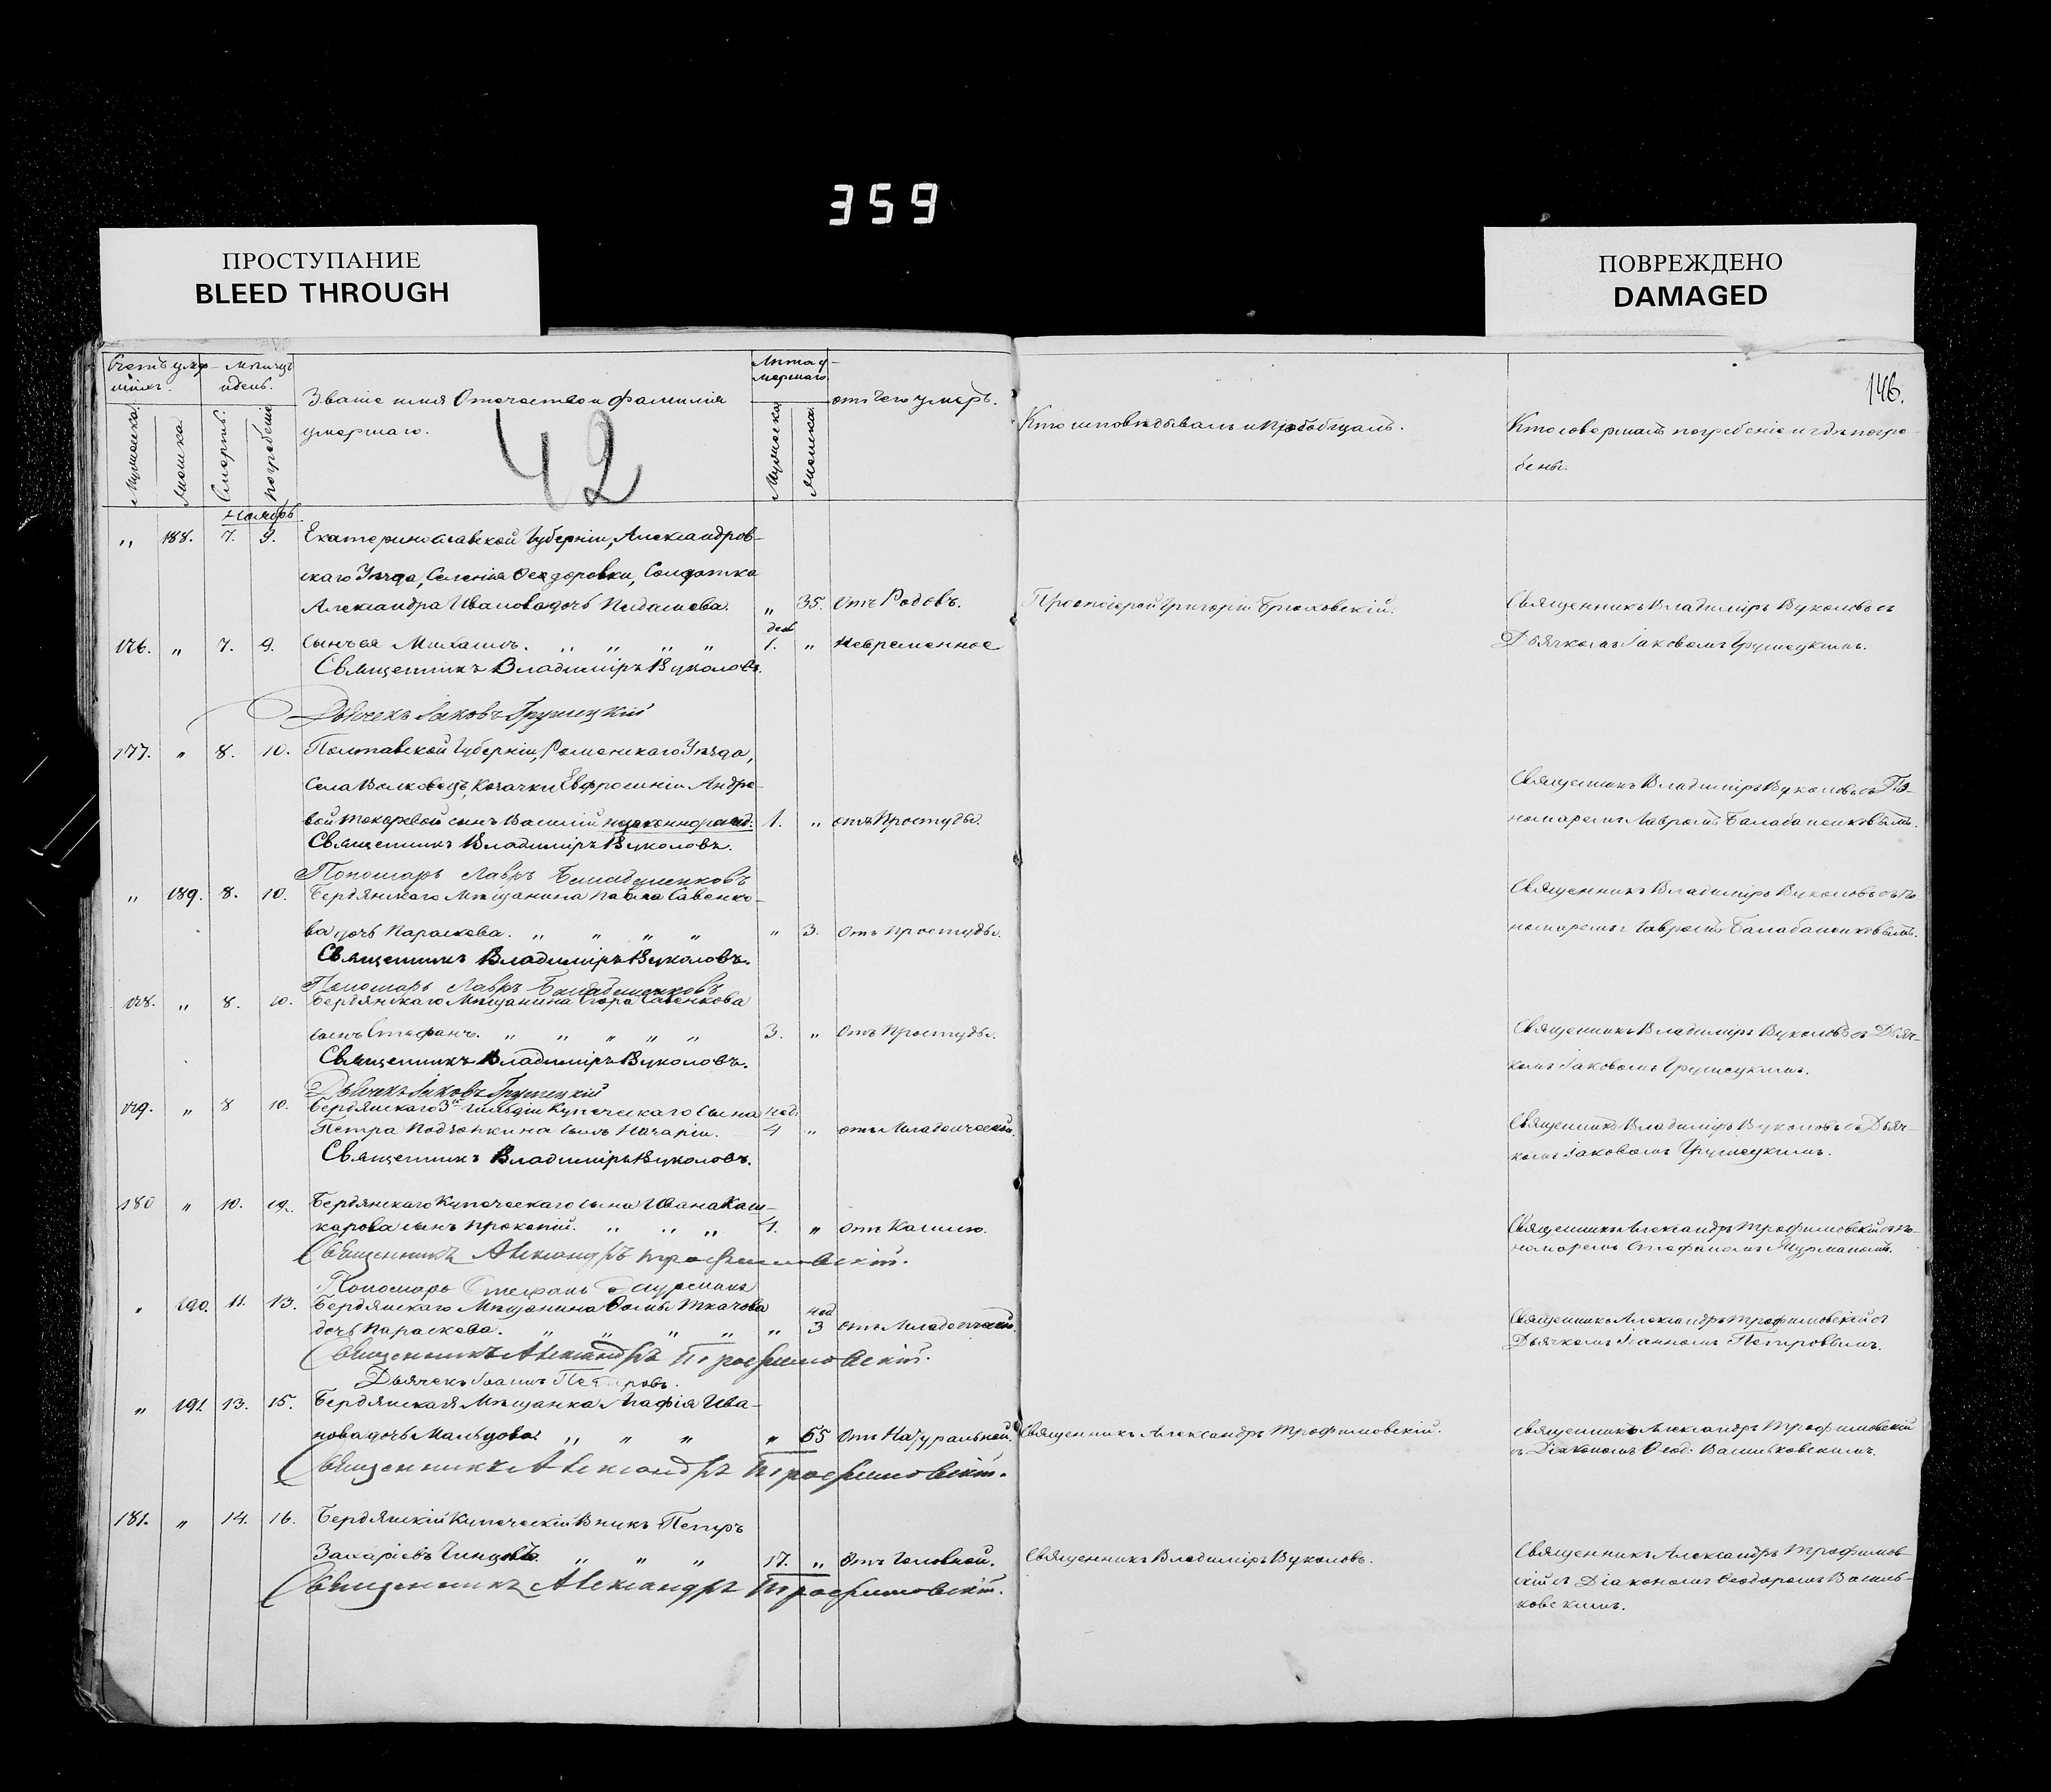 359
ПРОСТУПАНИЕ
BLEED THROUGH
ПОВРЕЖДЕНО
DAMAGED
146.
Счетъ умер-
шихъ.
Мѣсяцъ
и день.
Мужеска.
Женска.
Смерти.
Погребенія
Званіе имя Отечество и фамилія
умершаго.
42
Лѣта у-
мершаго
Мужеска
Женска.
отъ чего умеръ.
Кто исповѣдывалъ и пріобщалъ.
Кто совершалъ погребеніе и гдѣ погре-
бены.
Ноябрь
„ 188. 7. 9. Екатеринославской Губерніи, Александров-
скаго Уѣзда, Селенія Феодоровки, Солдатка
Александра Иванова дочь „ 35. Отъ Родовъ. Протоіерей Григорій Священникъ Владиміръ Вуколовъ съ
176. „ 7. 9. Сынъ ея Михаилъ. „ „ „ „ 1. „ Невременное Дьячкомъ Іаковомъ Грушецкимъ.
Священникъ Владиміръ Вуколовъ.
Дьячекъ Іаковъ Грушецкій
177. „ 8. 10. Полтавской Губерніи, Роменскаго Уѣзда,
Села Волковецъ, Козачки Евфросиніи Андре- Священникъ Владиміръ Вуколовъ съ По-
вой Токаревой сынъ Василій незаконнорожд: 1. „ отъ Простуды. номаремъ Лавромъ Балабаненковымъ.
Священникъ Владиміръ Вуколовъ.
Пономарь Лавръ Балабаненковъ
„ 189. 8. 10. Бердянскаго Мѣщанина Павла Савенко- Священникъ Владиміръ Вуколовъ съ По-
ва дочь Параскева. „ „ „ „ „ 3. Отъ Простуды. номаремъ Лавромъ Балабаненковымъ.
Священникъ Владиміръ Вуколовъ.
Пономарь Лавръ Балабаненковъ
178. „ 8. 10. Бердянскаго Мѣщанина Егора Савенкова
сынъ Стефанъ. „ „ „ „ „ 3. „ Отъ Простуды. Священникъ Владиміръ Вуколовъ съ Дьяч-
комъ Іаковомъ Грушецкимъ.
Священникъ Владиміръ Вуколовъ.
Дьячекъ Іаковъ Грушецкій
179. „ 8 10. Бердянскаго 3й Гильдіи Купеческаго Сына нед. Священникъ Владиміръ Вуколовъ съ Дьяч-
Петра сынъ 4 „ отъ Младенческой. комъ Іаковомъ Грушецкимъ.
Священникъ Владиміръ Вуколовъ.
180 „ 10. 12. Бердянскаго Купеческаго сына Ивана Каш-
карова сынъ Прокопій. „ „ „ 4. „ отъ Кашлю. Священникъ Александръ Трофимовскій съ По-
номаремъ Стефаномъ
Священникъ Александръ Трофимовскій.
Пономарь Стефанъ
„ 190. 11. 13. Бердянскаго Мѣщанина Фомы Ткачова нед Священникъ Александръ Трофимовскій съ
дочь Параскева. „ „ „ „ „ 3 отъ Младенческой. Дьячкомъ Іоанномъ Петровымъ.
Священникъ Александръ Трофимовскій.
Дьячекъ Іоаннъ Петровъ.
„ 191. 13. 15. Бердянская Мѣщанка Агафія Ива-
нова дочь Мальцова. „ „ „ „ 65 Отъ Натуральной. Священникъ Александръ Трофимовскій. Священникъ Александръ Трофимовскій
съ Діакономъ Феод: Васильковскимъ.
Священникъ Александръ Трофимовскій.
181. „ 14. 16. Бердянскій Купеческій Внукъ Петръ
Захаріевъ „ „ „ 17. „ Отъ Головной. Священникъ Владиміръ Вуколовъ. Священникъ Александръ Трофимов-
скій съ Діакономъ Феодоромъ Василь-
ковскимъ.
Священникъ Александръ Трофимовскій.